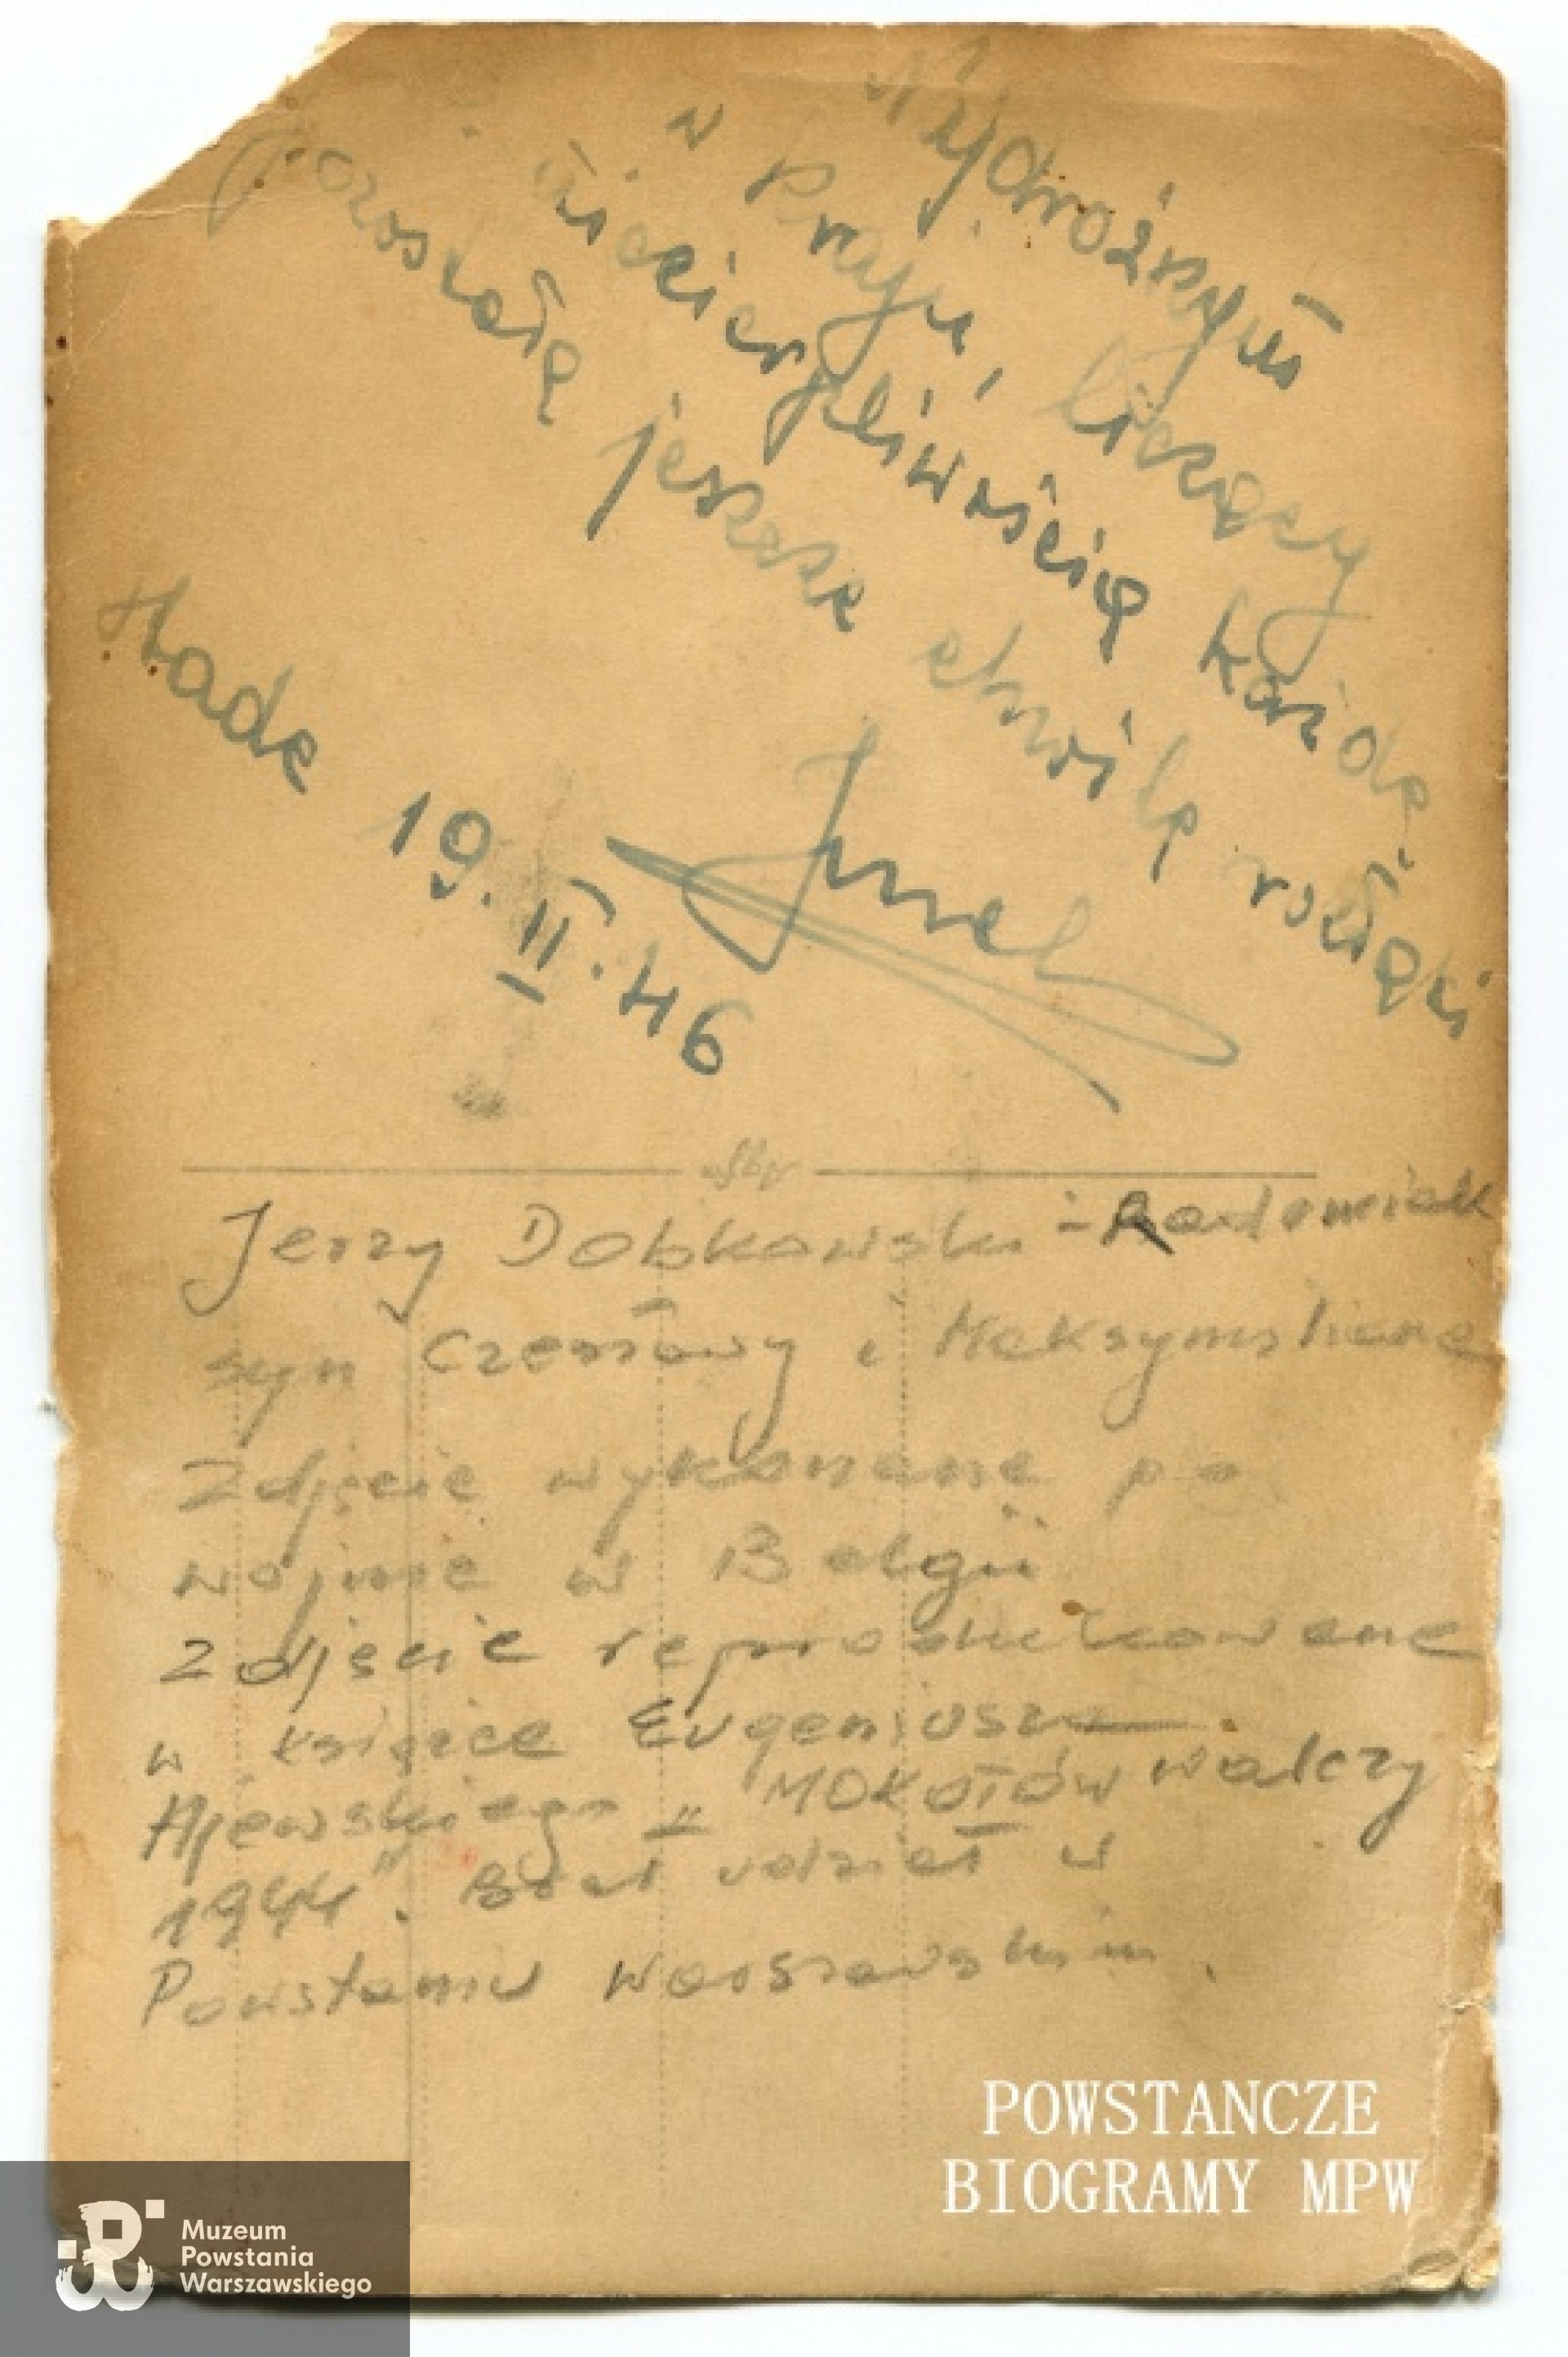 Najdroższym
w kraju, liczący
z niecierpliwością każdą
pozostałą jeszcze chwilę rozłąki
Jurek
Stade 19.II.46
Jerzy Dobkowski - Radomiak
syn Czesławy i Maksymiliana
Zdjęcie wykonane po
wojnie w Belgii
Zdjęcie reprodukowane
w książce Eugeniusza
Ajewskiego „MOKOTÓW walczy
1944". Brał udział w
Powstaniu Warszawskim.
POWSTANCZE
BIOGRAMY MPW
Muzeum
Powstania
Warszawskiego